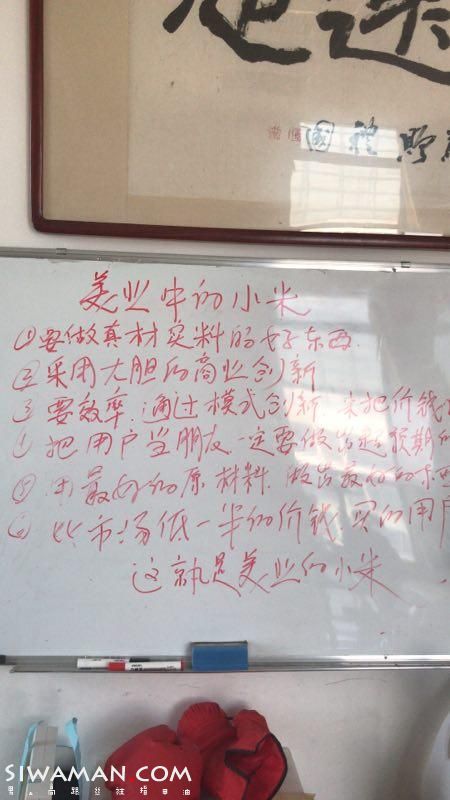 美业中的小米
①要做真材实料的好东西.
②采用大胆的商业创新
③要效率.通过模式创新.来把价钱
④把用户当朋友.一定要做出超预期的
⑤用最好的原材料.做出最好的东西
⑥比市场低一半的价钱.买的用户
这就是美业的小米
SIWAMAN COM